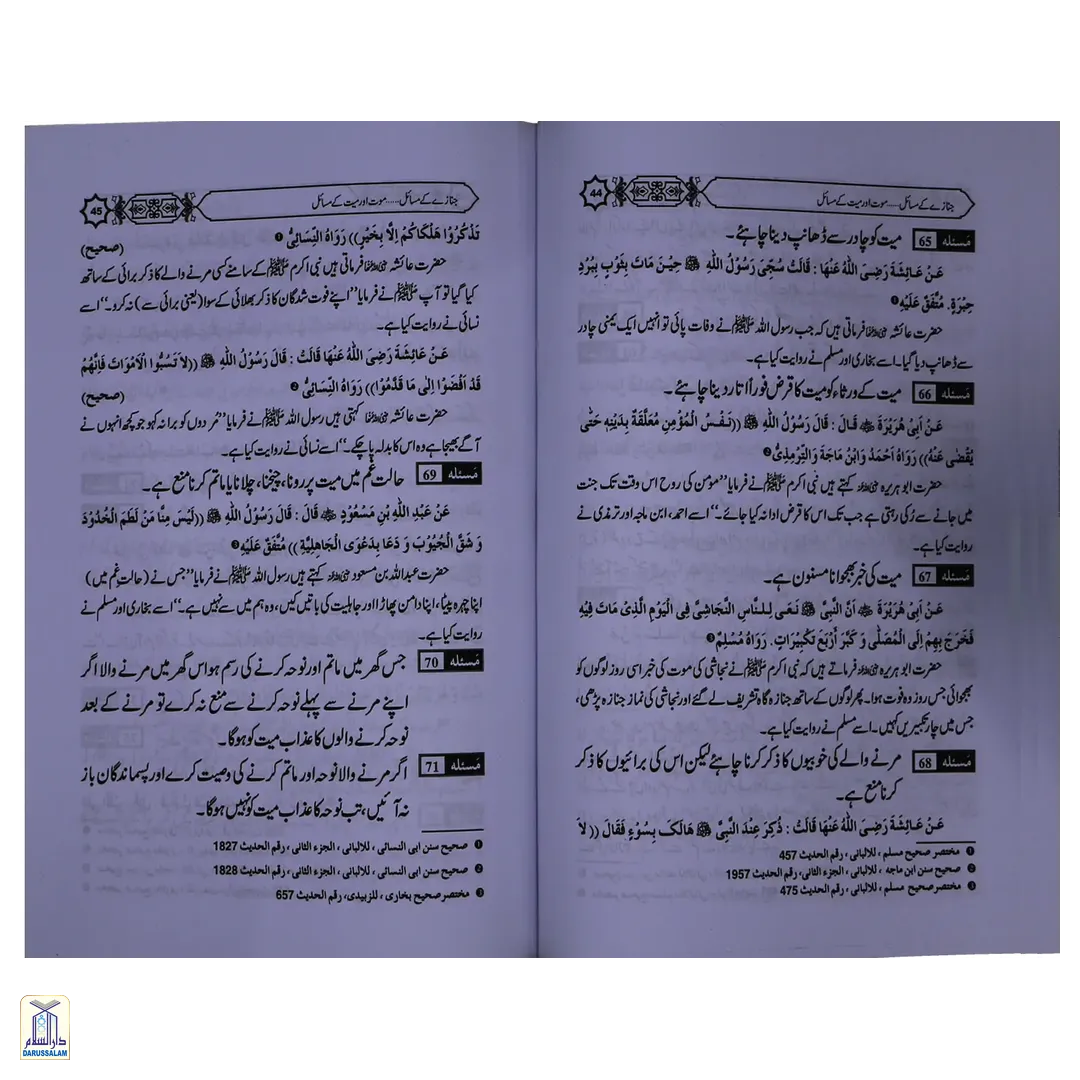 44
جنازے کے مسائل.....موت اور میت کے مسائل
مَسئله 65 میت کو چادر سے ڈھانپ دینا چاہئے۔
عَنْ عَائِشَةَ رَضِيَ اللّٰهُ عَنْهَا : قَالَتْ سُجِّيَ رَسُوْلُ اللّٰهِ ﷺ حِيْنَ مَاتَ بِثَوْبٍ بِبُرْدٍ
حِبَرَةٍ. مُتَّفَقٌ عَلَيْهِ❶
حضرت عائشہ رضی اللہ عنہا فرماتی ہیں کہ جب رسول اللہ ﷺ نے وفات پائی تو انہیں ایک یمنی چادر
سے ڈھانپ دیا گیا۔ اسے بخاری اور مسلم نے روایت کیا ہے۔
مَسئله 66 میت کے ورثاء کو میت کا قرض فوراً اتار دینا چاہئے۔
عَنْ أَبِيْ هُرَيْرَةَ ﷺ قَالَ : قَالَ رَسُوْلُ اللّٰهِ ﷺ ((نَفْسُ الْمُؤْمِنِ مُعَلَّقَةٌ بِدَيْنِهِ حَتّٰى
يُقْضٰى عَنْهُ)) رَوَاهُ أَحْمَدُ وَابْنُ مَاجَةَ وَالتِّرْمِذِيُّ❷
حضرت ابو ہریرہ رضی اللہ عنہ کہتے ہیں نبی اکرم ﷺ نے فرمایا ”مومن کی روح اس وقت تک جنت
میں جانے سے رُکی رہتی ہے جب تک اس کا قرض ادا نہ کیا جائے۔“ اسے احمد، ابن ماجہ اور ترمذی نے
روایت کیا ہے۔
مَسئله 67 میت کی خبر بھجوانا مسنون ہے۔
عَنْ أَبِيْ هُرَيْرَةَ أَنَّ النَّبِيَّ ﷺ نَعٰى لِلنَّاسِ النَّجَاشِيَّ فِي الْيَوْمِ الَّذِيْ مَاتَ فِيْهِ
فَخَرَجَ بِهِمْ إِلَى الْمُصَلّٰى وَ كَبَّرَ أَرْبَعَ تَكْبِيْرَاتٍ. رَوَاهُ مُسْلِمٌ❸
حضرت ابو ہریرہ رضی اللہ عنہ فرماتے ہیں کہ نبی اکرم ﷺ نے نجاشی کی موت کی خبر اسی روز لوگوں کو
بھجوائی جس روز وہ فوت ہوا۔ پھر لوگوں کے ساتھ جنازہ گاہ تشریف لے گئے اور نجاشی کی نماز جنازہ پڑھی،
جس میں چار تکبیریں کہیں۔ اسے مسلم نے روایت کیا ہے۔
مَسئله 68 مرنے والے کی خوبیوں کا ذکر کرنا چاہئے لیکن اس کی برائیوں کا ذکر
کرنا منع ہے۔
عَنْ عَائِشَةَ رَضِيَ اللّٰهُ عَنْهَا قَالَتْ : ذُكِرَ عِنْدَ النَّبِيِّ ﷺ هَالِكٌ بِسُوْءٍ فَقَالَ (( لاَ
❶ مختصر صحيح مسلم ، للالبانى ، رقم الحديث 457
❷ صحيح سنن ابن ماجه ، للالبانى ، الجزء الثانى، رقم الحديث 1957
❸ مختصر صحيح مسلم ، للالبانى ، رقم الحديث 475
45
جنازے کے مسائل.....موت اور میت کے مسائل
تَذْكُرُوْا هَلْكَاكُمْ اِلَّا بِخَيْرٍ)) رَوَاهُ النِّسَائِيُّ❶ (صحیح)
حضرت عائشہ رضی اللہ عنہا فرماتی ہیں نبی اکرم ﷺ کے سامنے کسی مرنے والے کا ذکر برائی کے ساتھ
کیا گیا تو آپ ﷺ نے فرمایا ”اپنے فوت شدگان کا ذکر بھلائی کے سوا (یعنی برائی سے) نہ کرو۔“ اسے
نسائی نے روایت کیا ہے۔
عَنْ عَائِشَةَ رَضِيَ اللّٰهُ عَنْهَا قَالَتْ : قَالَ رَسُوْلُ اللّٰهِ ﷺ ((لاَ تَسُبُّوا الْاَمْوَاتَ فَاِنَّهُمْ
قَدْ اَفْضَوْا اِلٰى مَا قَدَّمُوْا)) رَوَاهُ النِّسَائِيُّ❷ (صحیح)
حضرت عائشہ رضی اللہ عنہا کہتی ہیں رسول اللہ ﷺ نے فرمایا ”مُردوں کو برا نہ کہو جو کچھ انہوں نے
آگے بھیجا ہے وہ اس کا بدلہ پا چکے۔“ اسے نسائی نے روایت کیا ہے۔
مَسئله 69 حالت غم میں میت پر رونا، چیخنا، چلانا یا ماتم کرنا منع ہے۔
عَنْ عَبْدِ اللّٰهِ بْنِ مَسْعُوْدٍ قَالَ : قَالَ رَسُوْلُ اللّٰهِ ﷺ ((لَيْسَ مِنَّا مَنْ لَطَمَ الْخُدُوْدَ
وَ شَقَّ الْجُيُوْبَ وَ دَعَا بِدَعْوَى الْجَاهِلِيَّةِ )) مُتَّفَقٌ عَلَيْهِ❸
حضرت عبداللہ بن مسعود رضی اللہ عنہ کہتے ہیں رسول اللہ ﷺ نے فرمایا ”جس نے (حالت غم میں)
اپنا چہرہ پیٹا، اپنا دامن پھاڑا اور جاہلیت کی باتیں کیں، وہ ہم میں سے نہیں ہے۔“ اسے بخاری اور مسلم نے
روایت کیا ہے۔
مَسئله 70 جس گھر میں ماتم اور نوحہ کرنے کی رسم ہو اس گھر میں مرنے والا اگر
اپنے مرنے سے پہلے نوحہ کرنے سے منع نہ کرے تو مرنے کے بعد
نوحہ کرنے والوں کا عذاب میت کو ہوگا۔
مَسئله 71 اگر مرنے والا نوحہ اور ماتم نہ کرنے کی وصیت کرے اور پسماندگان باز
نہ آئیں، تب نوحہ کا عذاب میت کو نہیں ہوگا۔
❶ صحيح سنن ابى النسائى ، للالبانى ، الجزء الثانى ، رقم الحديث 1827
❷ صحيح سنن ابى النسائى ، للالبانى ، الجزء الثانى ، رقم الحديث 1828
❸ مختصر صحيح بخارى ، للزبيدى، رقم الحديث 657
دار السلام
DARUSSALAM